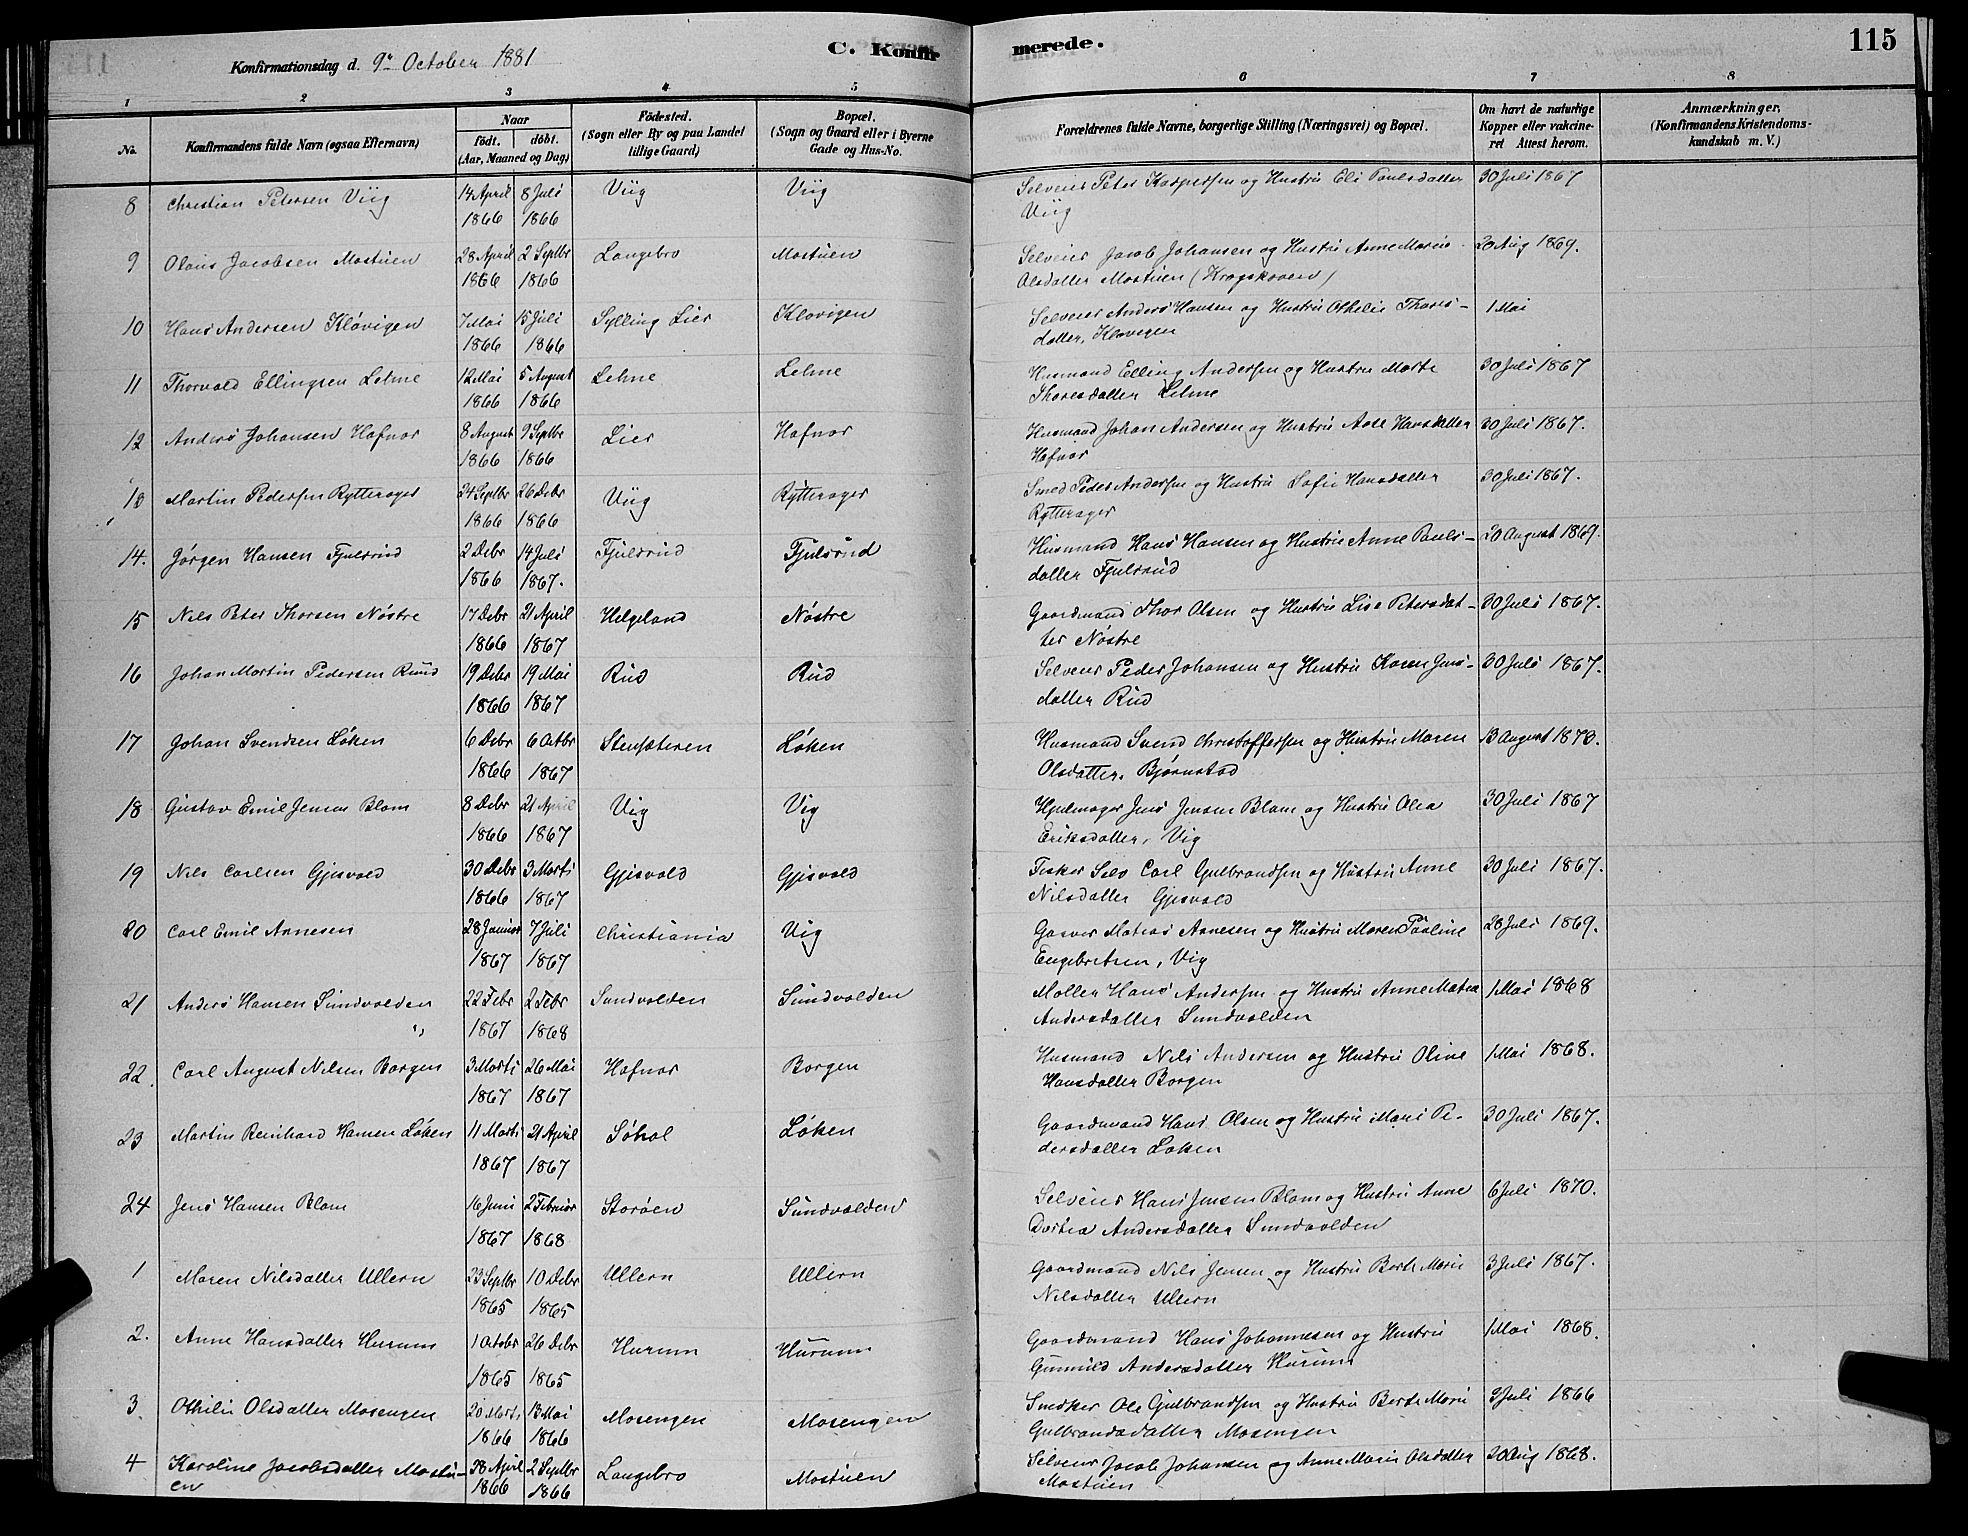 115
C. Konfirmerede.
Konfirmationsdag d. 9de October 1881
1 2 3 4 5 6 7 8
No. Konfirmandens fulde Navn (ogsaa Efternavn) Naar født. døbt. (Aar, Maaned og Dag) Fødested. (Sogn eller By og paa Landet tillige Gaard) Bopæl. (Sogn og Gaard eller i Byerne Gade og Hus-No. Forældrenes fulde Navne, borgerlige Stilling (Næringsvei) og Bopæl. Om havt de naturlige Kopper eller vakcineret Attest herom. Anmærkninger. (Konfirmandens Kristendomskundskab m. V.)
8 Christian Petersen Viig 14 April 8 Juli Viig Viig Selveier Peter Kaspersen og Hustru Eli Paulsdatter 30 Juli 1867
1866 1866 Viig
9 Olaus Jacobsen Mostuen 28 April 2 Septbr Langebro Mostuen Selveier Jacob Johansen og Hustru Anne Marie 20 Aug 1869.
1866 1866 Olsdatter Mostuen (Krogskoven)
10 Hans Andersen Kløvigen 7 Mai 15 Juli Sylling Lier Klovigen Selveier Anders Hansen og Hustru Othelie Thores- 1 Mai
1866 1866 datter, Klovigen
11 Thorvald Ellingsen Lehne 12 Mai 5 August Lehne Lehne Husmand Elling Andersen og Hustru Marte 30 Juli 1867
1866 1866 Thoresdatter Lehne
12 Anders Johansen Hafnor 8 August 9 Septbr Lier Hafnor Husmand Johan Andersen og Hustru Aase Hansdatter 30 Juli 1867.
1866 1866 Hafnor
13 Martin Pedersen Rytterager 24 Septbr 26 Debr Viig Rytterager Smed Peder Andersen og Hustru Sofie Hansdatter 30 Juli 1867.
1866 1866 Rytterager
14. Jørgen Hansen Fjulsrud 2 Debr 14 Juli Fjulsrud Fjulsrud Husmand Hans Hansen og Hustru Anne Pauls- 20 August 1869.
1866 1867. datter Fjulsrud
15 Nils Peter Thorsen Nøstre 17 Debr 21 April Helgeland Nøstre Gaardmand Thor Olsen og Hustru Lise Petersdat- 30 Juli 1867.
1866 1867 ter Nøstre
16 Johan Martin Pedersen Ruud 19 Debr 19 Mai Rud Rud Selveier Peder Johansen og Hustru Karen Jens- 30 Juli 1867.
1866 1867 datter Rud
17 Johan Svendsen Løken 6 Debr 6 Octbr Stensæteren Løken Husmand Svend Christoffersen og Hustru Maren 13 August 1873.
1866 1867 Olsdatter. Bjørnstad
18 Gustav Emil Jensen Blom 8 Debr 21 April Viig Vig Hjulmager Jens Jensen Blom og Hustru Olea 30 Juli 1867
1866 1867 Eriksdatter, Vig
19 Nils Carlsen Gjesvold 30 Debr 3 Marts Gjesvold Gjesvold Fisker Selv Carl Gulbrandsen og Hustru Anne 30 Juli 1867.
1866 1867 Nilsdatter Gjesvold
20 Carl Emil Arnesen 28 Januar 7 Juli Christiania Vig Garver Matias Arnesen og Hustru Maren Pauline 28 Juli 1869.
1867 1867 Engebretsen, Vig
21 Anders Hansen Sundvolden 22 Febr 2 Febr Sundvolden Sundvolden Møller Hans Andersen og Hustru Anne Matea 1 Mai 1868
" 1867 1868 Andersdatter Sundvolden
22. Carl August Nilsen Borgen 3 Marts 26 Mai Hafnor Borgen Husmand Nils Andersen og Hustru Oline 1 Mai 1868.
1867 1867 Hansdatter Borgen
23 Martin Reinhard Hansen Løken 11 Marts 21 April Søhol Løken Gaardmand Hans Olsen og Hustru Mari Pe- 30 Juli 1867.
1867 1867 dersdatter Løken
24 Jens Hansen Blom 16 Juni 2 Februar Storøen Sundvolden Selveier Hans Jensen Blom og Hustru Anne 6 Juli 1870.
1867 1868 Dortea Andersdatter Sundvolden
1 Maren Nilsdatter Ullern 23 Septbr 10 Debr Ullern Ullern Gaardmand Nils Jensen og Hustru Berte Marie 3 Juli 1867.
1865 1865 Nilsdatter Ullern
2. Anne Hansdatter Hurum 1 Octobr 26 Debr Hurum Hurum Gaardmand Hans Johannesen og Hustru 1 Mai 1868.
1865 1865 Gunnild Andersdatter Hurum
3. Othilie Olsdatter Mosengen 20 Marts 13 Mai Mosengen Mosengen Snedker Ole Gulbrandsen og Hustru Berte Marie 9 Juli 1866
1866 1866 Gulbrandsdatter Mosengen
4 Karoline Jacobsdatter Mostu- 28 April 2 Septbr Langebro Mostuen Selveier Jacob Johansen og Anne Marie Olsdatter 20 Aug 1868.
en 1866 1866 Mostuen